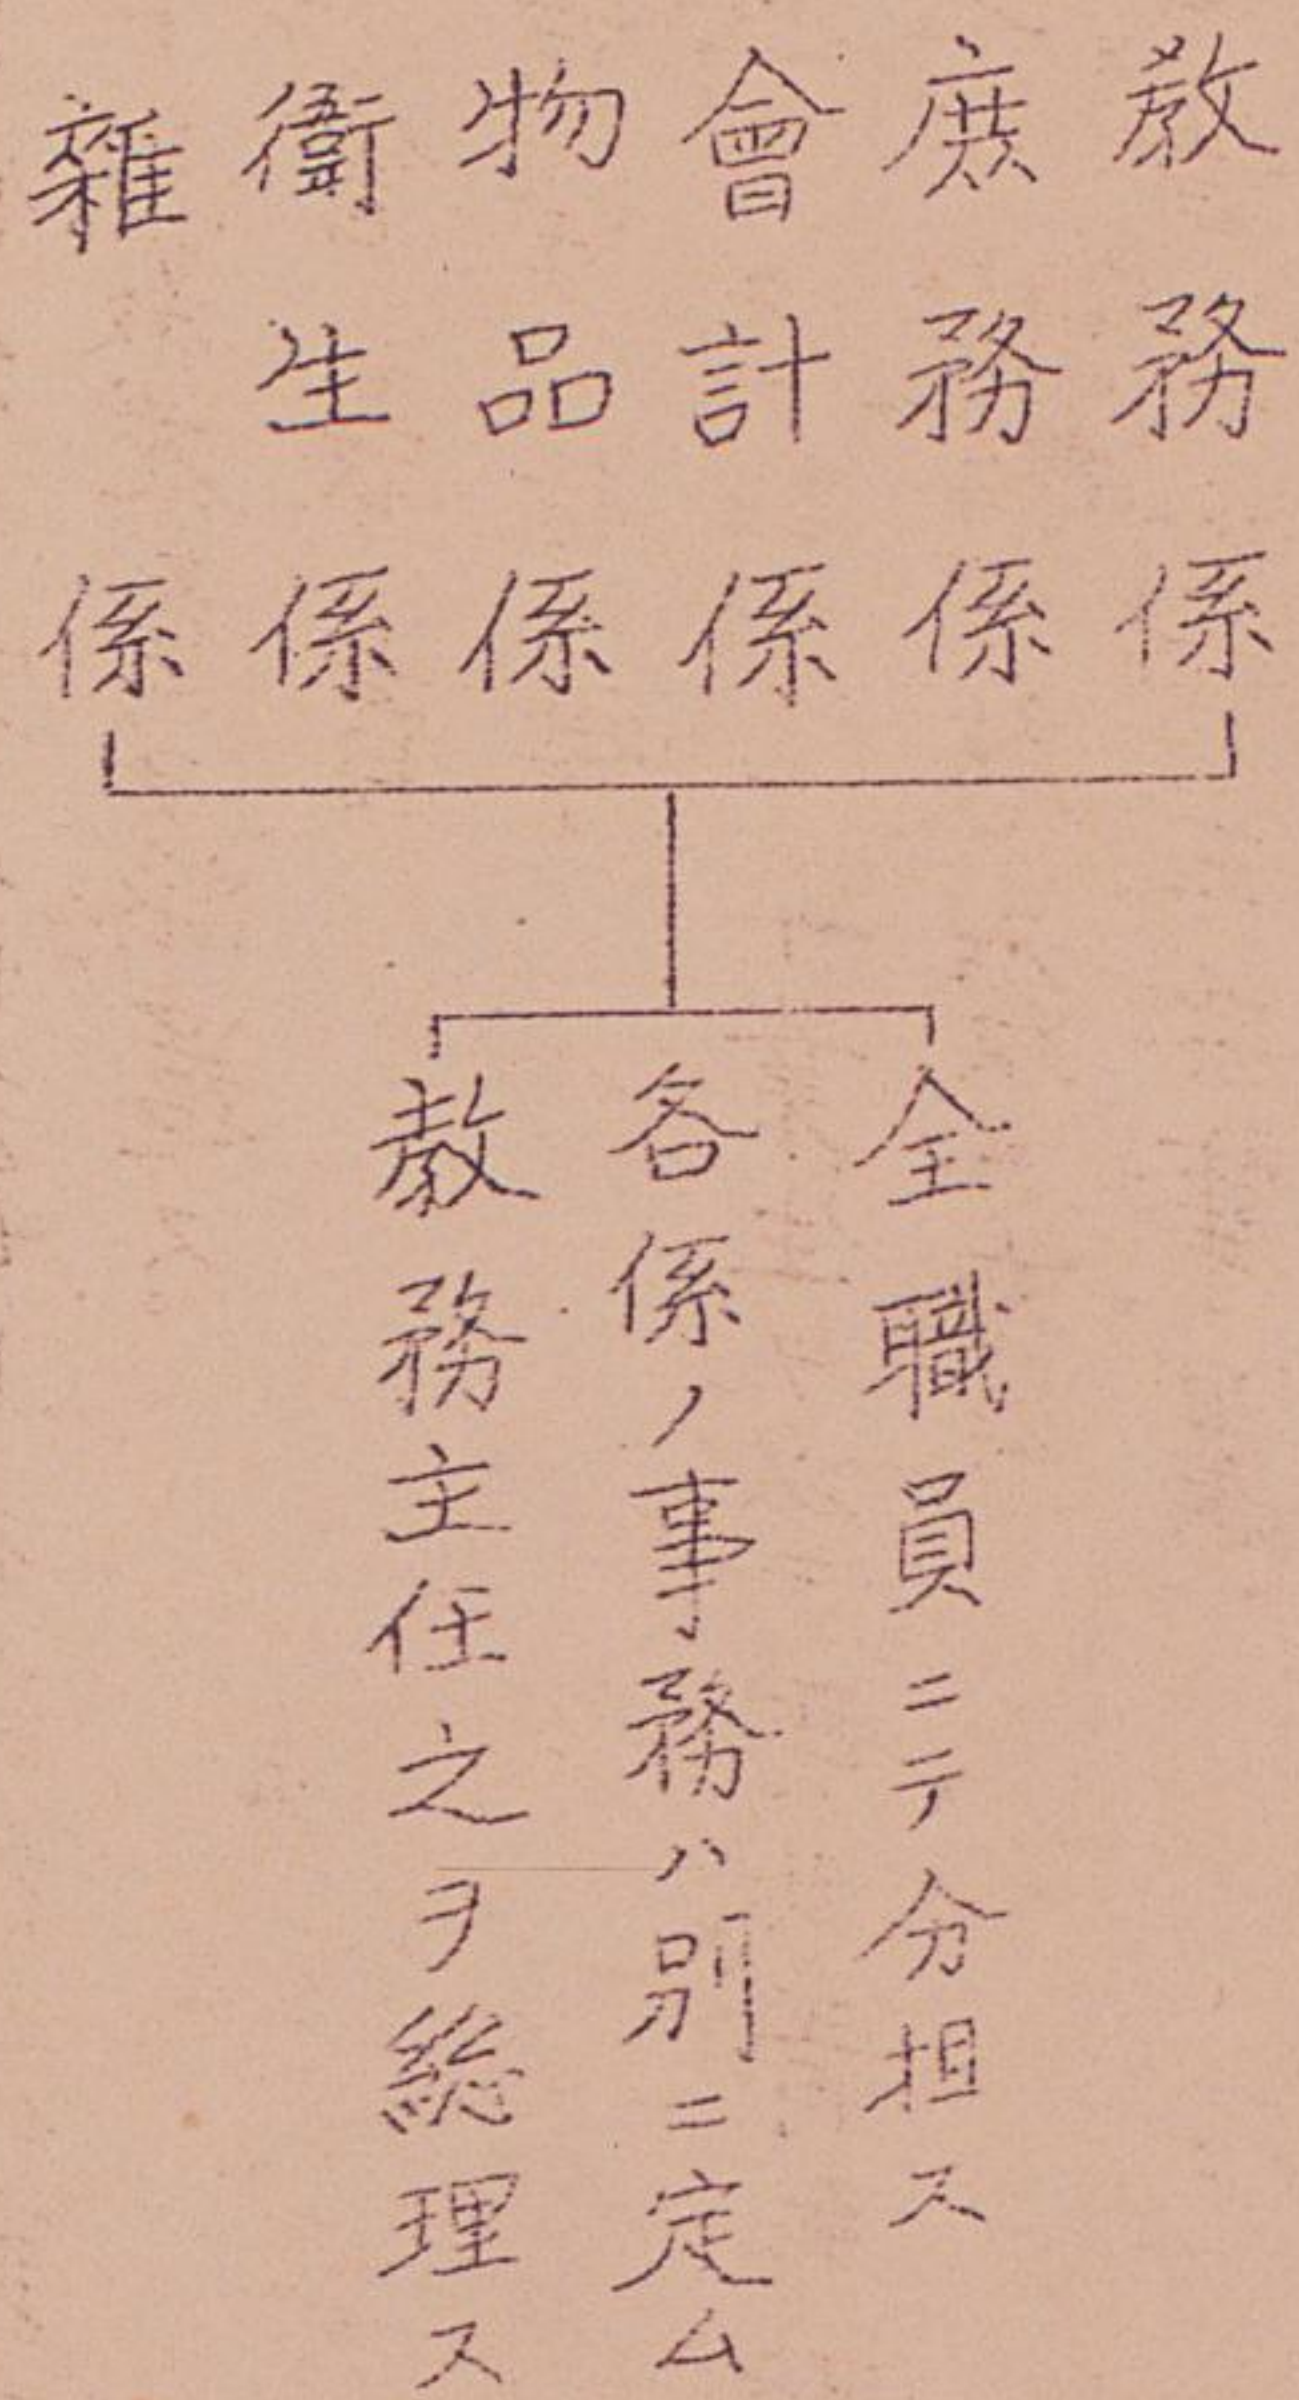 教務係
庶務係
會計係
物品係
衛生係
雜係
全職員ニテ分担ス
各係ノ事務ハ別ニ定ム
教務主任之ヲ総理ス